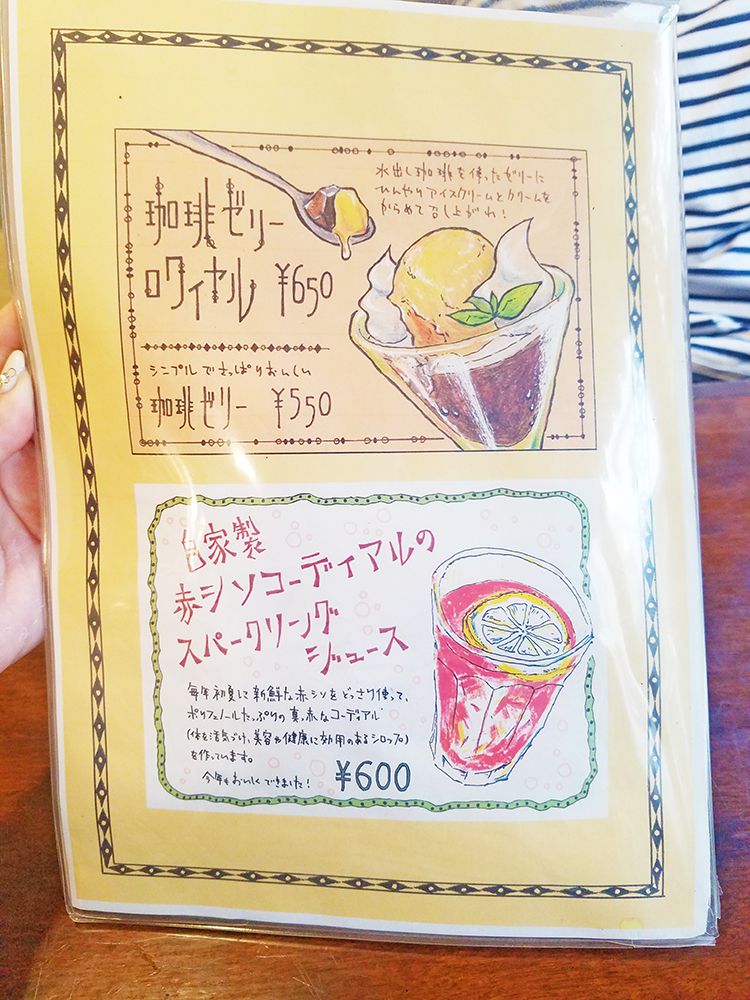 水出し珈琲を使ったゼリーに
ひんやりアイスクリームとクリームを
からめて召し上がれ!
珈琲ゼリー
ロワイヤル ¥650
シンプルでさっぱりおいしい
珈琲ゼリー ¥550
自家製
赤シソコーディアルの
スパークリング
ジュース
毎年初夏に新鮮な赤シソをどっさり使って、
ポリフェノールたっぷりの真っ赤なコーディアル
(体を活気づけ、美容や健康に効用のあるシロップ)
を作っています。
今年もおいしくできました!
¥600